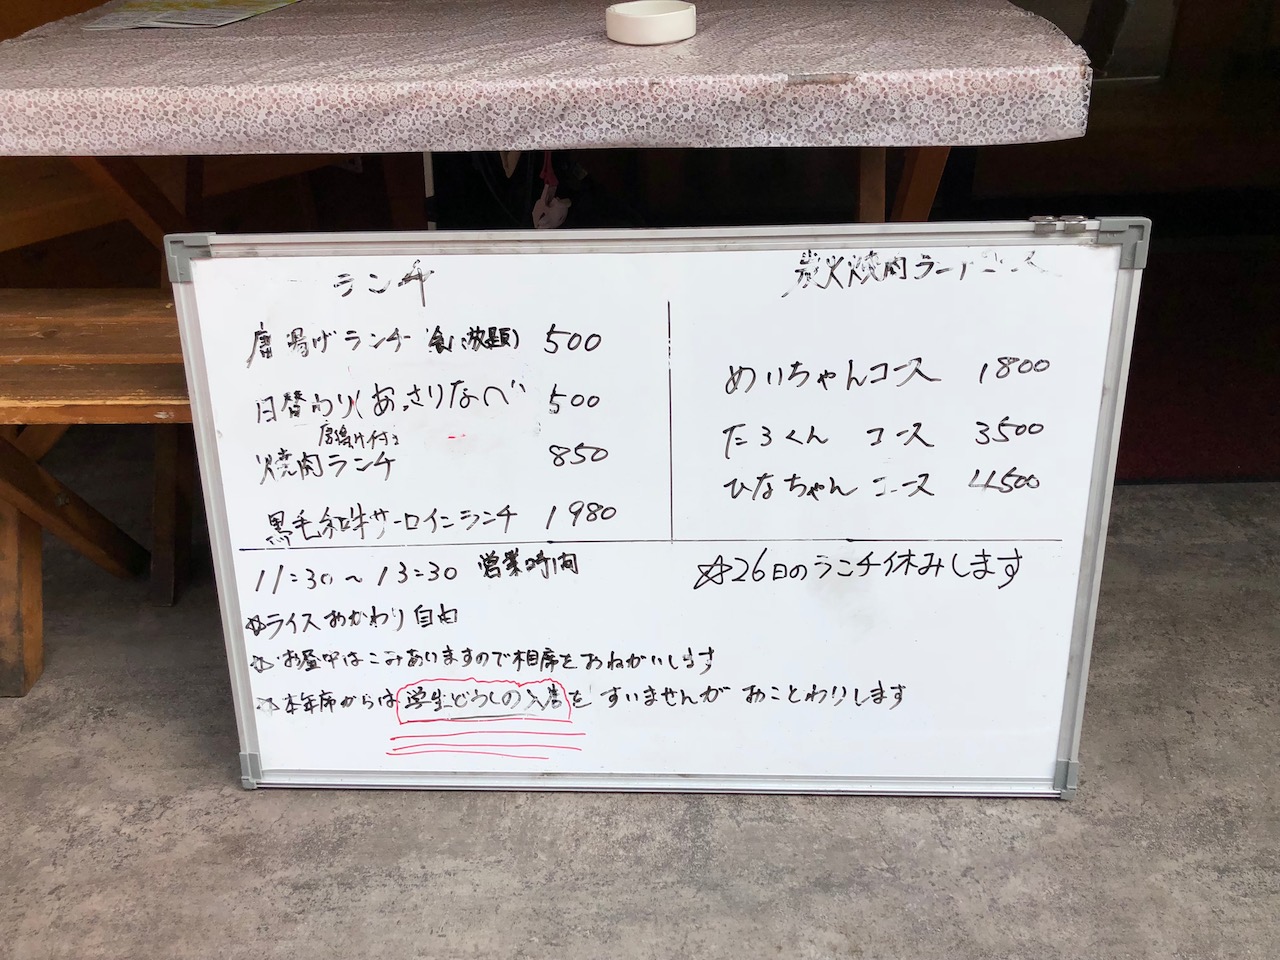 ランチ
唐揚げランチ 食べ放題) 500
日替わり(あっさりなべ 500
唐揚げ付き
焼肉ランチ 850
黒毛和牛サーロインランチ 1980
炭火焼肉
めいちゃんコース 1800
たろくん コース 3500
ひなちゃん コース 4500
11:30〜13:30 営業時間
☆ライスおかわり自由
☆お昼中はこみあいますので相席をおねがいします
☆本年席からは学生どうしの入店を すいませんが おことわりします
☆26日のランチ休みします